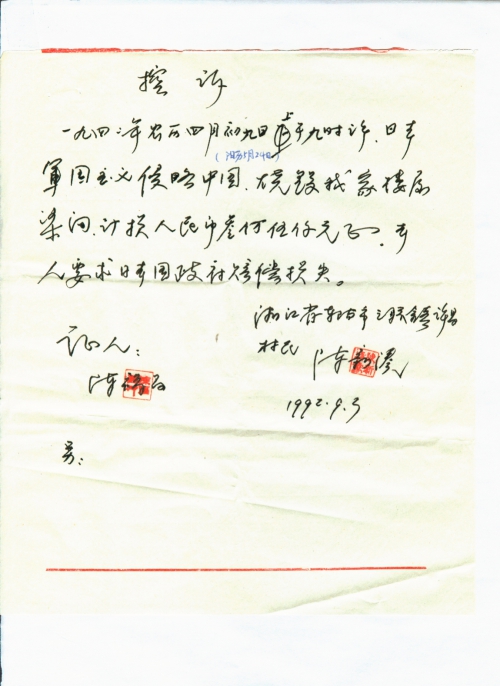 控诉
一九四二年农历四月初九日上午九时许、日本
(阳历5月24日)
军国主义侵略中国、烧毁我家楼屋
柒间、计损人民币叁仟伍仟元正、本
人要求日本国政府赔偿损失。
浙江省东阳市三联镇许
村民
证人:
1992.9.3
另: